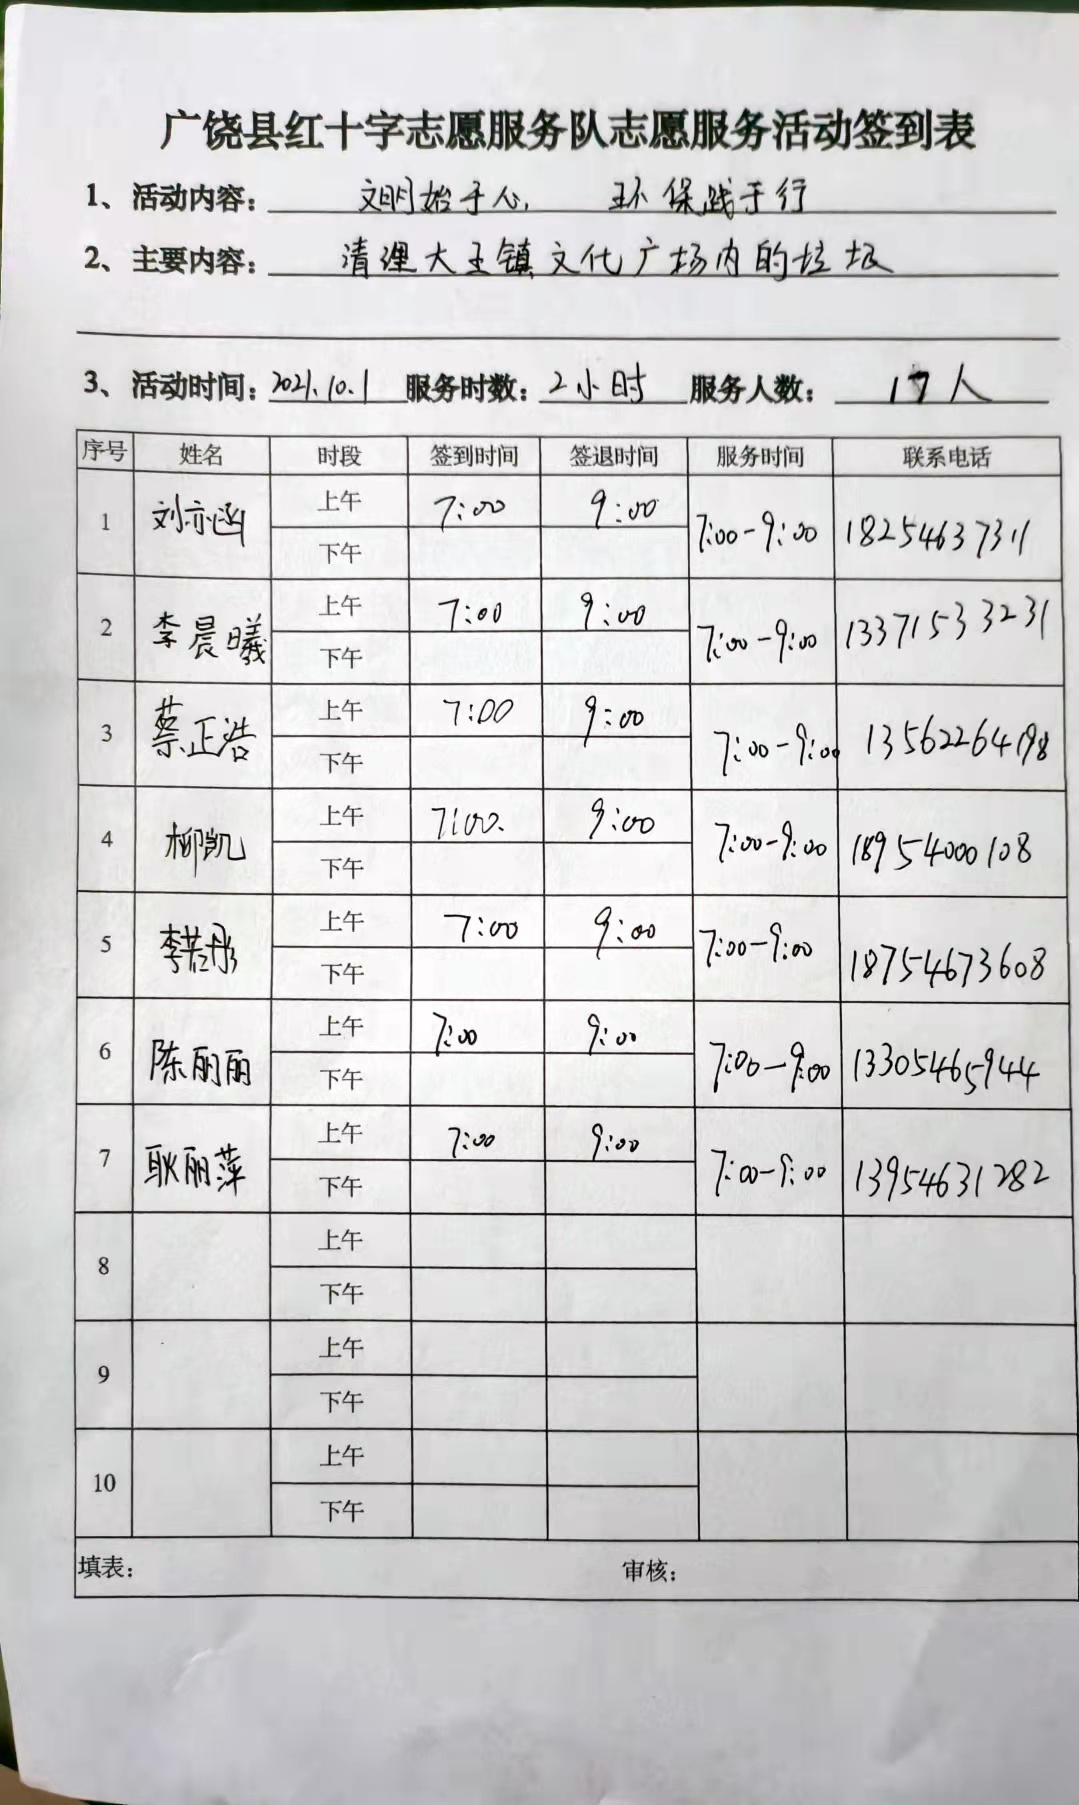 广饶县红十字志愿服务队志愿服务活动签到表
1、活动内容：文明始于心，环保践于行
2、主要内容：清理大王镇文化广场内的垃圾
3、活动时间：2021.10.1 服务时数：2小时 服务人数：17人
序号 姓名 时段 签到时间 签退时间 服务时间 联系电话
1 刘亦涵 上午 7:00 9:00 7:00-9:00 18254637311
下午
2 李晨曦 上午 7:00 9:00 7:00-9:00 13371533231
下午
3 蔡正浩 上午 7:00 9:00 7:00-9:00 13562264198
下午
4 柳凯 上午 7:00. 9:00 7:00-9:00 18954000108
下午
5 李若彤 上午 7:00 9:00 7:00-9:00 18754673608
下午
6 陈丽丽 上午 7:00 9:00 7:00-9:00 13305465944
下午
7 耿丽萍 上午 7:00 9:00 7:00-9:00 13954631282
下午
8 上午
下午
9 上午
下午
10 上午
下午
填表： 审核：